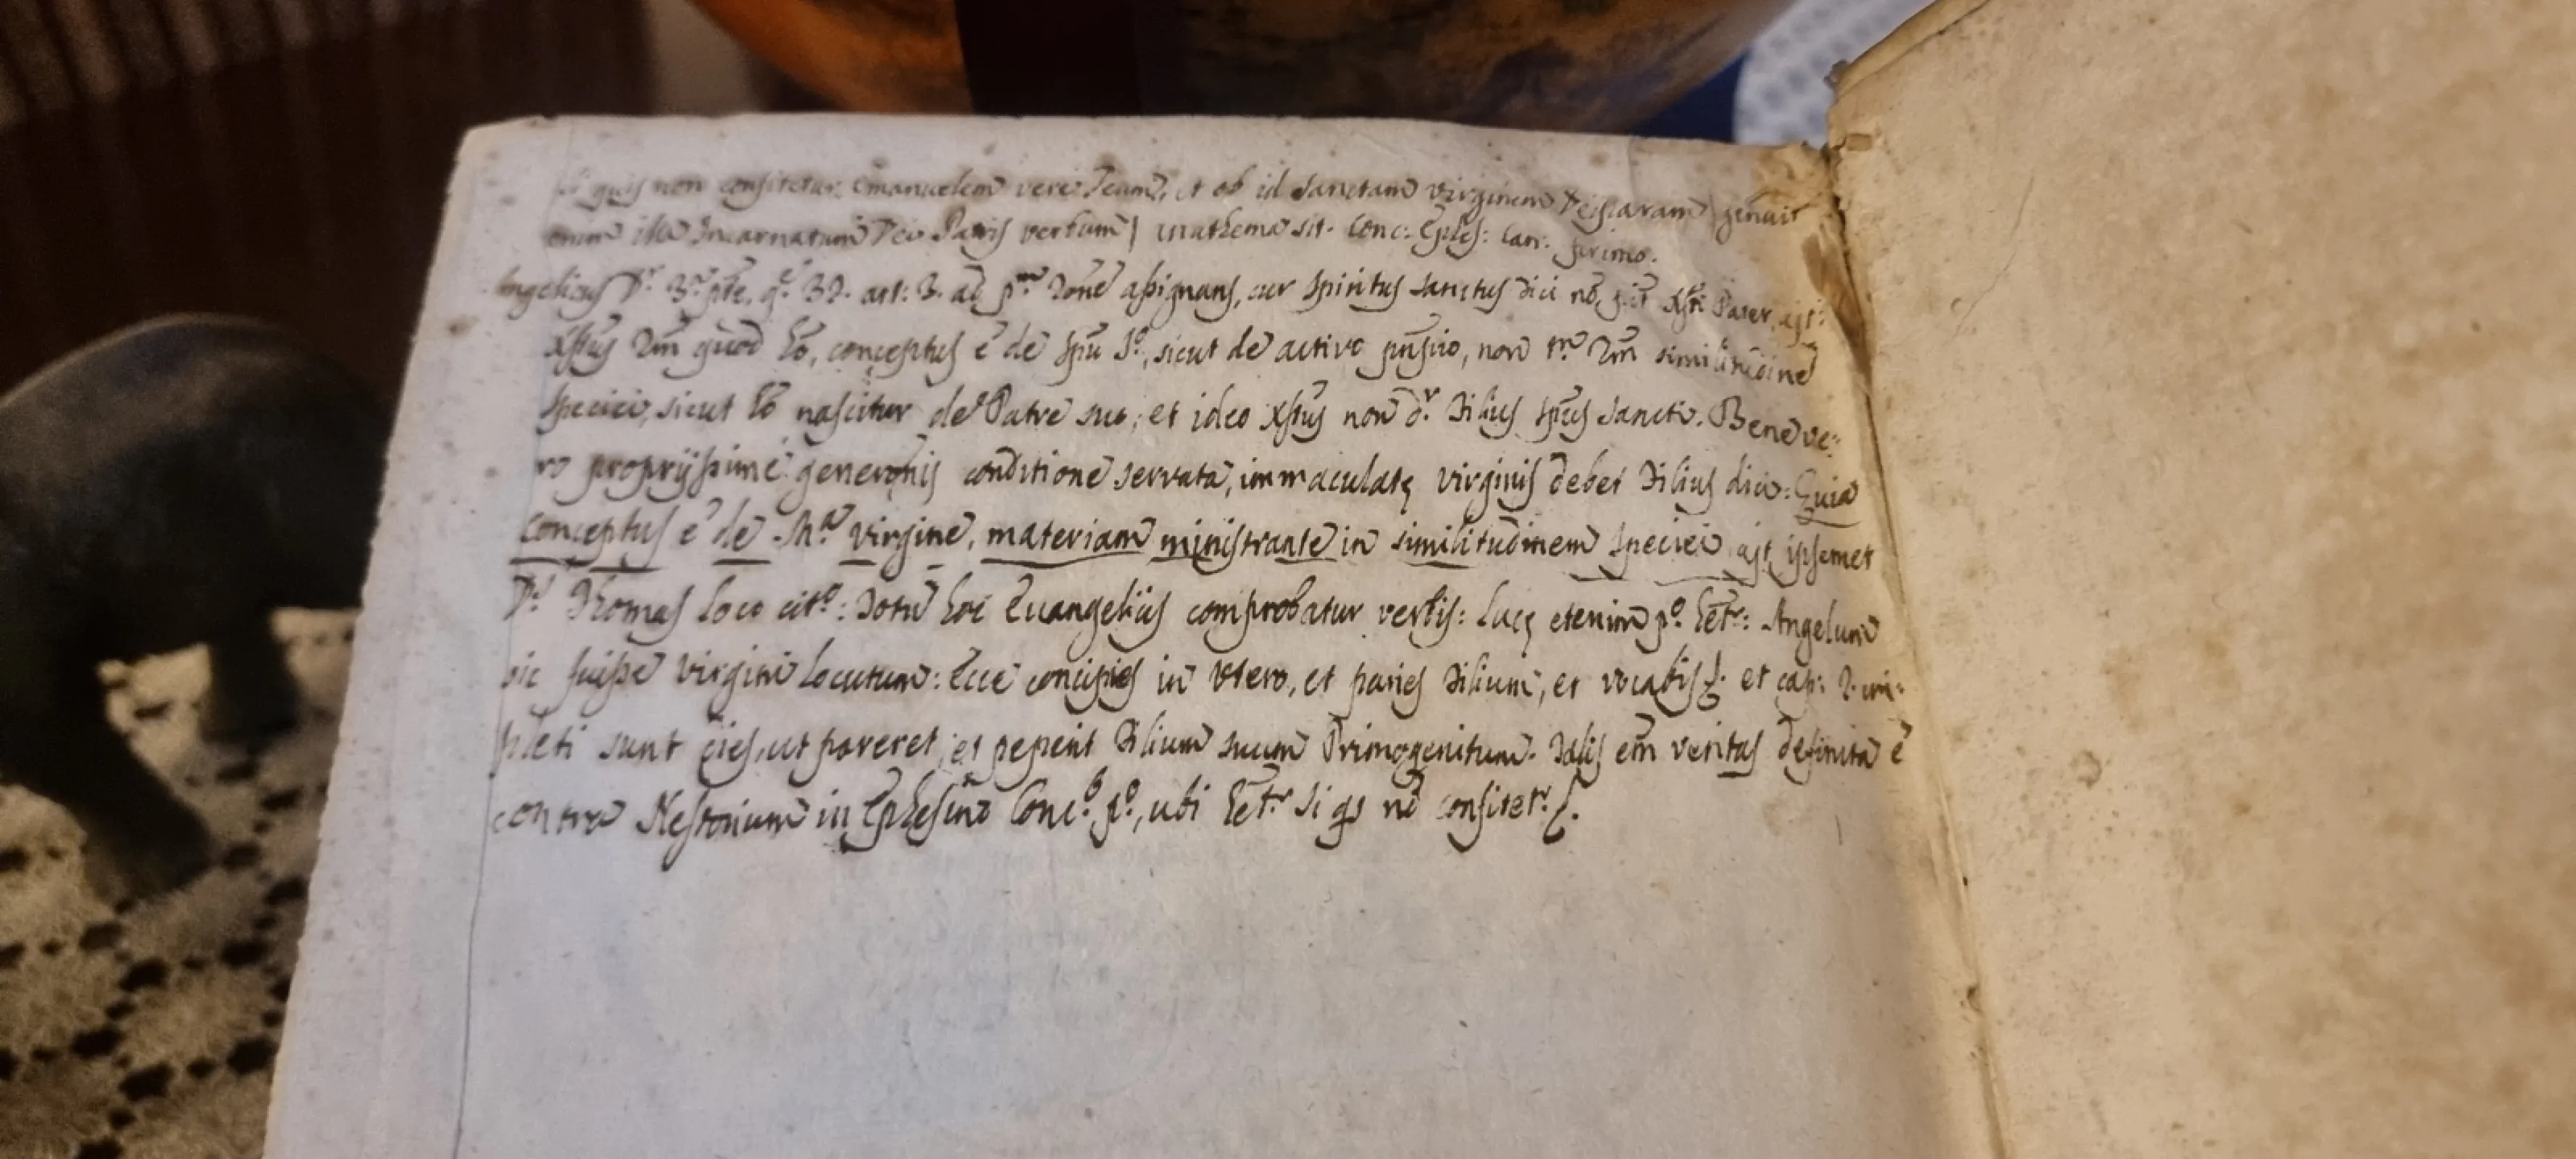 Si quis non confitetur Emanuelem vere Deum, et ob id Sanctam Virginem Deiparam (genuit
enim illa Incarnatum Dei Patris verbum) anathema sit. Conc: Ephes: Can: primo.
Angelicus Dr. 3a. pte. q. 32. art: 3. ad pm. assignans, cur Spiritus Sanctus dici nō. Xti Pater, ajt:
Xstus quod hō, conceptus ē de Spū So, sicut de activo, non similitudine
Speciei, sicut hō nascitur de Patre suo, et ideo Xstus non dr. Filius Spus Sancti. Bene ve:
ro propryssime generonis conditione servata, immaculatę virginis debet Filius dici: Quia
conceptus ē de Ma. virgine, materiam ministrante in similitudinem Speciei ajt ipsemet
Ds. Thomas loco cito: Totū hoc Euangelijs comprobatur verbis: Lucę etenim po. hētr: Angelum
sic fuisse virgini locutum: Ecce concipies in Vtero, et paries Filium, et vocabis et cap: 2. im:
pleti sunt dies, ut pareret, et peperit Filium suum Primogenitum. Talis em veritas definita ē
contra Nestorium in Ephesino Conco. po., ubi hētr Si qs nō confitetr.